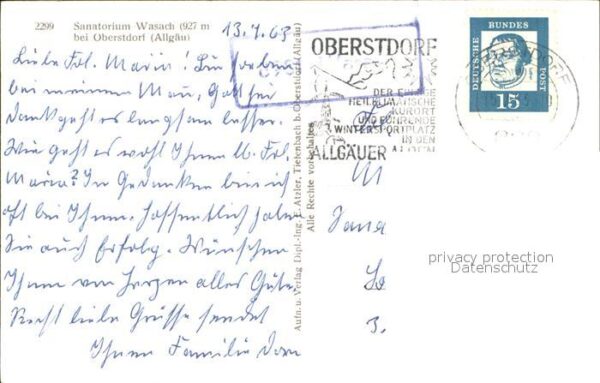 2299 Sanatorium Wasach (927 m
bei Oberstdorf (Allgäu)
13.4.63
Liebe Frl. Maria! Bin soeben
bei meinem Mann, Gott sei
Dank geht es langsam besser.
Wie geht es wohl Ihnen lb. Frl.
Maria? In Gedanken bin ich
oft bei Ihnen. Hoffentlich haben
Sie auch Erfolg. Wünschen
Ihnen von Herzen alles Gute.
Recht liebe Grüsse sendet
Ihnen Familie
Aufn. u. Verlag Dipl.-Ing. E. Atzler, Tiefenbach b. Oberstdorf (Allgäu)
Alle Rechte vorbehalten
OBERSTDORF
DER
HEILKLIMATISCHE
KURORT
UND FÜHRENDE
WINTERSPORTPLATZ
IN DEN
ALLGÄUER ALPEN
DEUTSCHE BUNDES POST
15
OBERSTDORF
privacy protection
Datenschutz